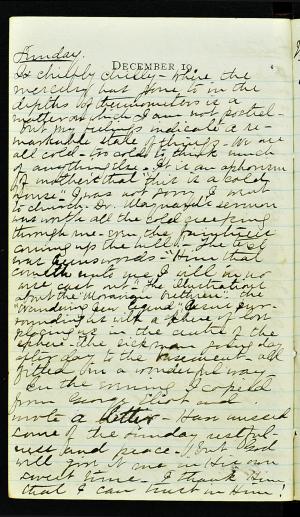 Sunday.
December 19.
Is chilly chilly - where the
mercury has gone to in the
depths of thermometers is a
matter on which I am not posted -
but my feelings indicate a re-
markable state of things. We are
all cold - too cold to think much
of anything else. It is an aphorism
of mother's that this is a cold
house. I was not sorry I went
to church. Dr. Maynard's sermon
was worth all the cold creeping
through me - even the faintness
coming up the hill. - The text
was Christ's words - "Him that
cometh unto me I will in no
wise cast out." The illustrations
about the Moravian brethren: the
"Wandering Jew" legend;
rounding it with a sphere of
we in the centre of the
sphere. The sick man going day
after day to the all
fitted in a wonderful way -
In the evening I copied
from George Eliot and
wrote a letter - Have missed
some of the Sunday restful-
ness and peace - But God
will give it me in His own
sweet time. I thank Him
that I can trust in Him!